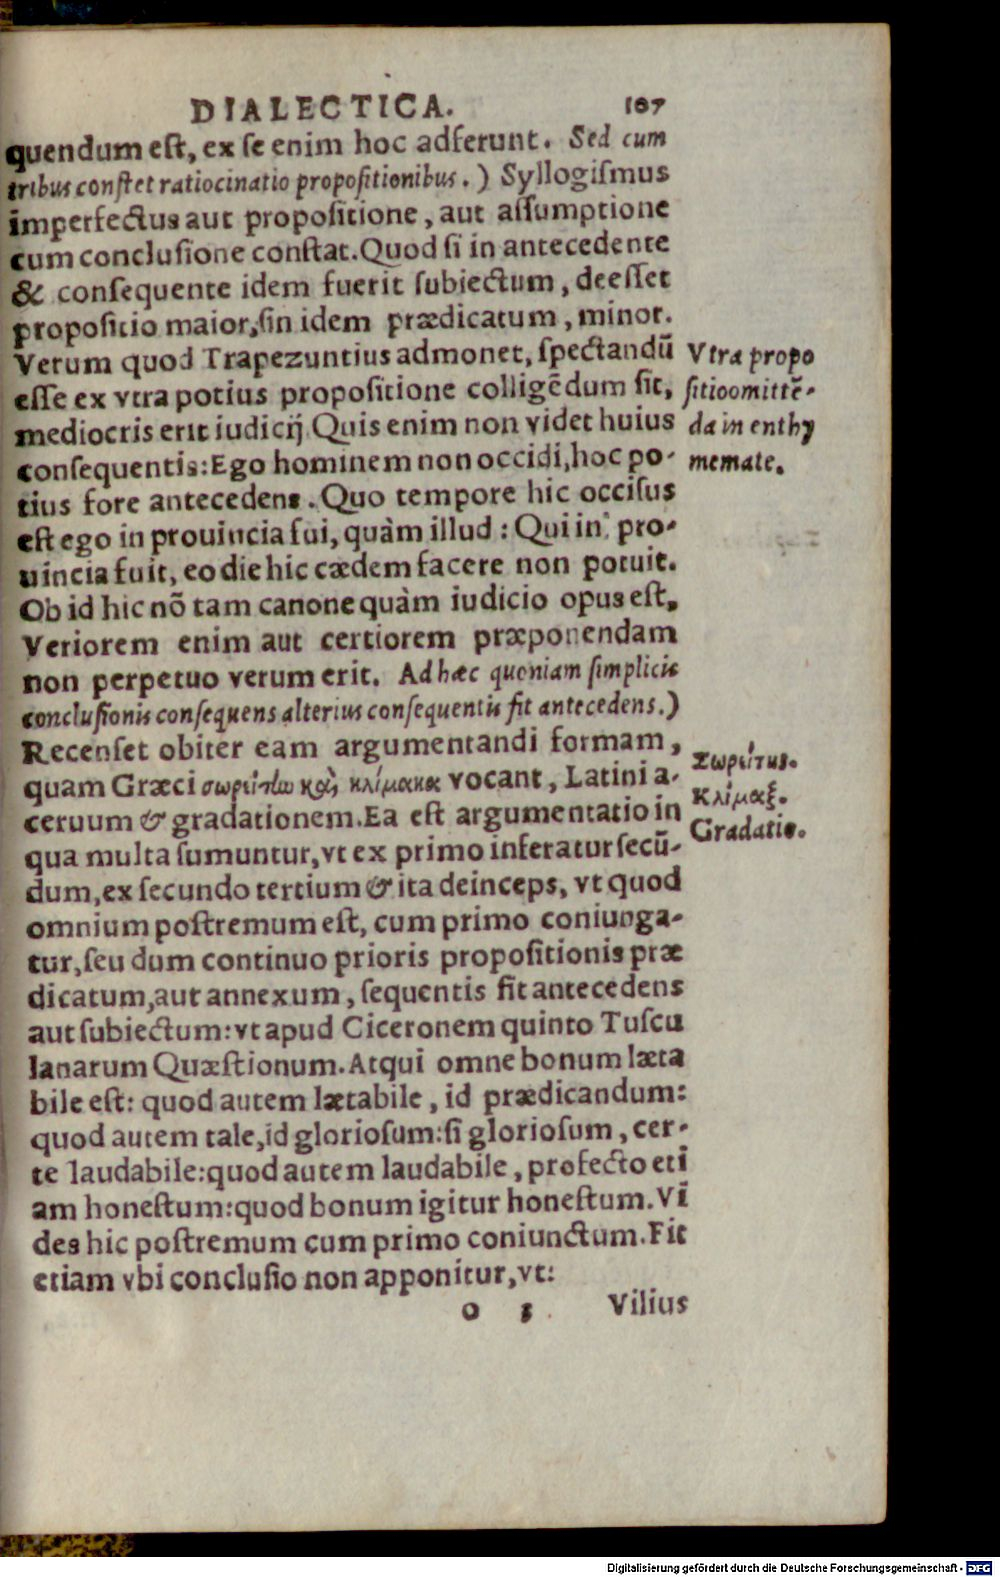 DIALECTICA. 107
quendum eſt, ex ſe enim hoc adferunt. Sed cum
tribus conſtet ratiocinatio propoſitionibus.) Syllogiſmus
imperfectus aut propoſitione, aut aſſumptione
cum concluſione conſtat. Quod ſi in antecedente
& conſequente idem fuerit ſubiectum, deeſſet
propoſitio maior, ſin idem prædicatum, minor.
Verum quod Trapezuntius admonet, ſpectandũ
eſſe ex vtra potius propoſitione colligẽdum ſit,
mediocris erit iudicij. Quis enim non videt huius
conſequentis: Ego hominem non occidi, hoc po-
tius fore antecedens. Quo tempore hic occiſus
eſt ego in prouincia fui, quàm illud: Qui in pro-
uincia fuit, eo die hic cædem facere non potuit.
Ob id hic nõ tam canone quàm iudicio opus eſt,
Veriorem enim aut certiorem præponendam
non perpetuo verum erit. Ad hæc quoniam ſimplicis
concluſionis conſequens alterius conſequentis fit antecedens.)
Recenſet obiter eam argumentandi formam,
quam Græci σωρείτlω καὶ κλίμακα vocant, Latini a-
ceruum & gradationem. Ea eſt argumentatio in
qua multa ſumuntur, vt ex primo inferatur ſecũ-
dum, ex ſecundo tertium & ita deinceps, vt quod
omnium poſtremum eſt, cum primo coniunga-
tur, ſeu dum continuo prioris propoſitionis præ
dicatum, aut annexum, ſequentis fit antecedens
aut ſubiectum: vt apud Ciceronem quinto Tuſcu
lanarum Quæſtionum. Atqui omne bonum læta
bile eſt: quod autem lætabile, id prædicandum:
quod autem tale, id glorioſum: ſi glorioſum, cer-
te laudabile: quod autem laudabile, profecto eti
am honeſtum: quod bonum igitur honeſtum. Vi
des hic poſtremum cum primo coniunctum. Fit
etiam vbi concluſio non apponitur, vt:
o 5 Vilius
Vtra propo
ſitio omittẽ-
da in enthy
memate.
Σωρείτης.
Κλίμαξ.
Gradatio.
Digitalisierung gefördert durch die Deutsche Forschungsgemeinschaft - DFG